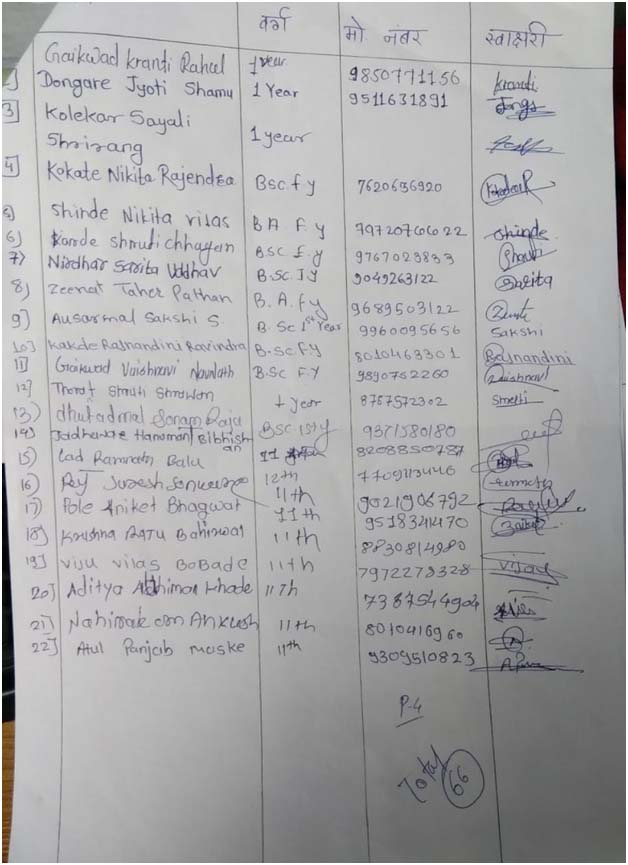 वर्ग मो. नंबर स्वाक्षरी
Gaikwad Krandi Rahul 1 year 9850771156 Krandi
2] Dongare Jyoti Shamu 1 Year 9511631891
3] Kolekar Sayali
Shrirang 1 year
4] Kokate Nikita Rajendra Bsc f y 7620636920
5] Shinde Nikita vilas B A F y 7972076622 Shinde
6) Shruti chhagan BSC f.y 9767023833
7) Nirdhar Sarita Uddhav B.SC. F Y 9049263122 Sarita
8) Zeenat Taher Pathan B.A. f y 9689503122
9) Ausarmal Sakshi S. B.Sc 1st Year 9960095656 Sakshi
10] Kakde Rajnandini Ravindra B.SC F.Y 8010463301 Rajnandini
11] Gaikwad Vaishnavi Navnath B.SC F.Y 9890762260 Vaishnavi
12] Thorat Smruti Shrawan 1 year 8767572302 Smruti
13) Sonam Raju BSC 1st y 9371580180
14] Hanumant Bibhish
an 11 9208850787
15) Lad Ramnath Balu 12th 7709113446
16) Raj Suresh 11th 9021906792
17) Pole Aniket Bhagwat 11th 9518341470
18] Krushna Raju Bahirwal 11th 8830814980
19] viju vilas BoBade 11th 7972278328
20] Aditya Khade 11th 7387544904
21] Ankush 11th 8010416960
22] Atul Panjab maske 11th 9309510823
P-4
Total 66